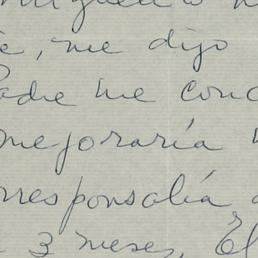 , me dijo
Padre me conc
mejoraría
rresponsalía a
3 meses, El